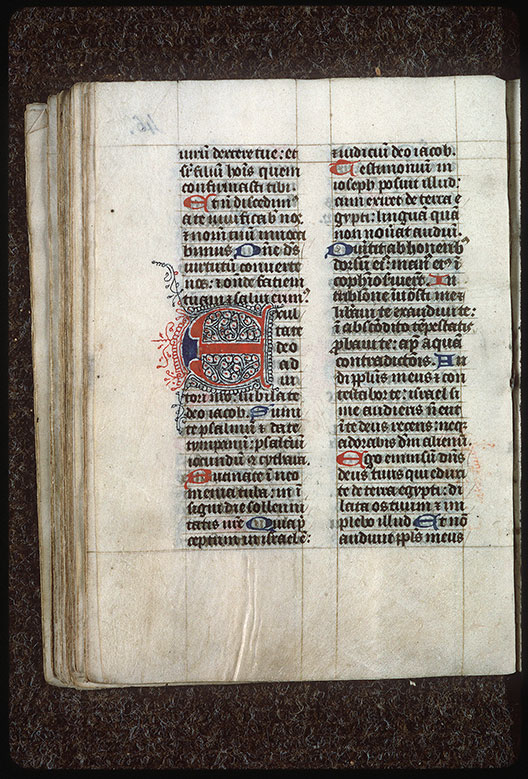 uirū dextere tue: et
sr̄ filiū hoīs quem
confirmasti tibi.
Et nō discedim⁹
a te uiuificab̄ nos
⁊ nomē tuū inuoca
bimus Dn̄e ds̄
uirtutū conuerte
nos: ⁊ onde faciem
tuam ⁊ salui erim⁹
Exul
tate
deo
ad
iu
tori nr̄o: iubilate
deo iacob. Sumi
te psalmū ⁊ date
tympanū: psaltiū
iocundū cū cythara.
Bucinate ī neo
menia tuba: in ī
signi die sollem̄
tatis ur̄e Quia p̄
ceptum in israel ē:
⁊ iudiciū deo iacob.
Testimoniū in
ioseph posuit illud:
cum exiret de terra e
gypti: linguā quā
non nouat audiuit.
Diutit ab honerib⁹
dorsū ei⁹: man⁹ ei⁹ ī
cophīo seruier̄t. In
tribl̄one īuocasti me ⁊
liberaui te exaudiui te:
ī abscōdito tēpestatis
probaui te: ap̄ aquā
contradictōis. Au
di pp̄lus meus ⁊ con
testabor te: israel si
me audieris nō erit
ī te deus recens: neq̨
adorabis dm̄ alienū.
Ego eni sū dn̄s
deus tuus qui eduxi
te de terra egypti: di
lata os tuum ⁊ im
plebo illud Et nō
audiuit pp̄ls meus
46.